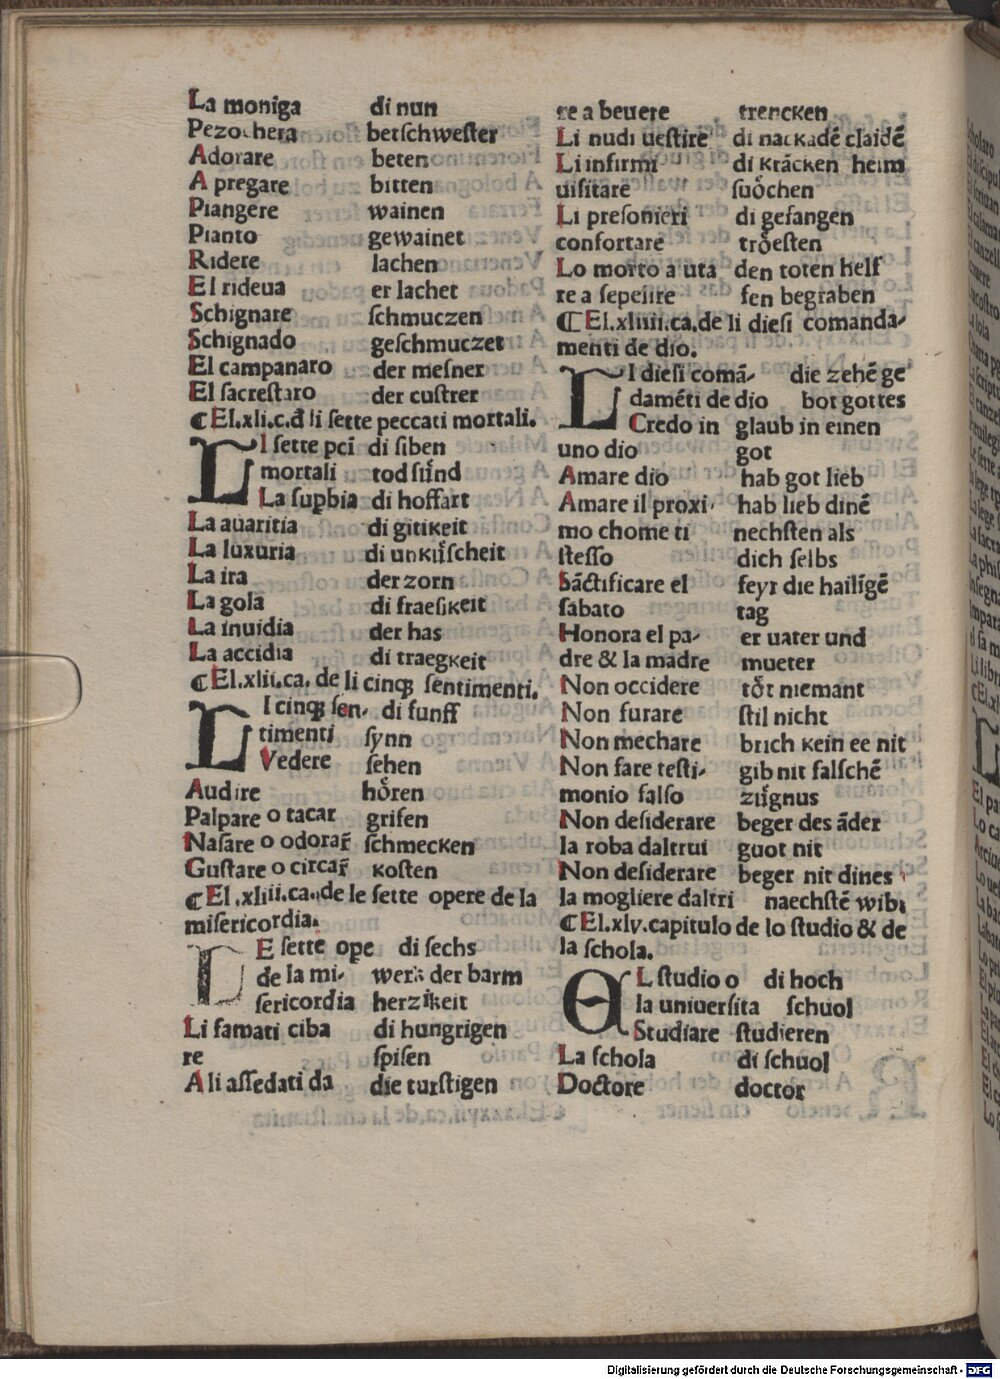 La moniga di nun
Pezochera betschwester
Adorare beten
A pregare bitten
Piangere wainen
Pianto gewainet
Ridere lachen
El rideua er lachet
Schignare schmuczen
Schignado geschmuczet
El campanaro der mesner
El sacrestaro der custrer
¶El.xli.c.đ li sette peccati mortali.
LI sette pc̄i di siben
mortali tod súnd
La supbia di hoffart
La auaritia di gitikeit
La luxuria di unkúscheit
La ira der zorn
La gola di fraesikeit
La inuidia der has
La accidia di traegkeit
¶El.xlii.ca. de li cinqꝫ sentimenti.
LI cinqꝫ sen- di funff
timenti synn
Vedere sehen
Audire hoͤren
Palpare o tacar grifen
Nasare o odorar̄ schmecken
Gustare o circar̄ kosten
¶El.xliii.ca.de le sette opere de la
misericordia.
LE sette ope di sechs
de la mi- werk der barm
sericordia herzikeit
Li famati ciba di hungrigen
re spisen
A li assedati da die turstigen
re a beuere trencken
Li nudi uestire di nackadē claidē
Li infirmi di krācken heim
uisitare suoͤchen
Li presonieri di gefangen
confortare troͤesten
Lo morto a uta den toten helf
re a sepelire fen begraben
¶El.xliiii.ca.de li diesi comanda-
menti de dio.
LI diesi comā- die zehē ge
damēti de dio bot gottes
Credo in glaub in einen
uno dio got
Amare dio hab got lieb
Amare il proxi- hab lieb dinē
mo chome ti nechsten als
stesso dich selbs
Sāctificare el feyr die hailīgē
sabato tag
Honora el pa- er uater und
dre & la madre mueter
Non occidere toͤt niemant
Non furare stil nicht
Non mechare brich kein ee nit
Non fare testi- gib nit falschē
monio falso zúgnus
Non desiderare beger des āder
la roba daltrui guot nit
Non desiderare beger nit dines
la mogliere daltri naechstē wibs
¶El.xlv.capitulo de lo studio & de
la schola.
EL studio o di hoch
la uniuersita schuol
Studiare studieren
La schola di schuol
Doctore doctor
Digitalisierung gefördert durch die Deutsche Forschungsgemeinschaft - DFG